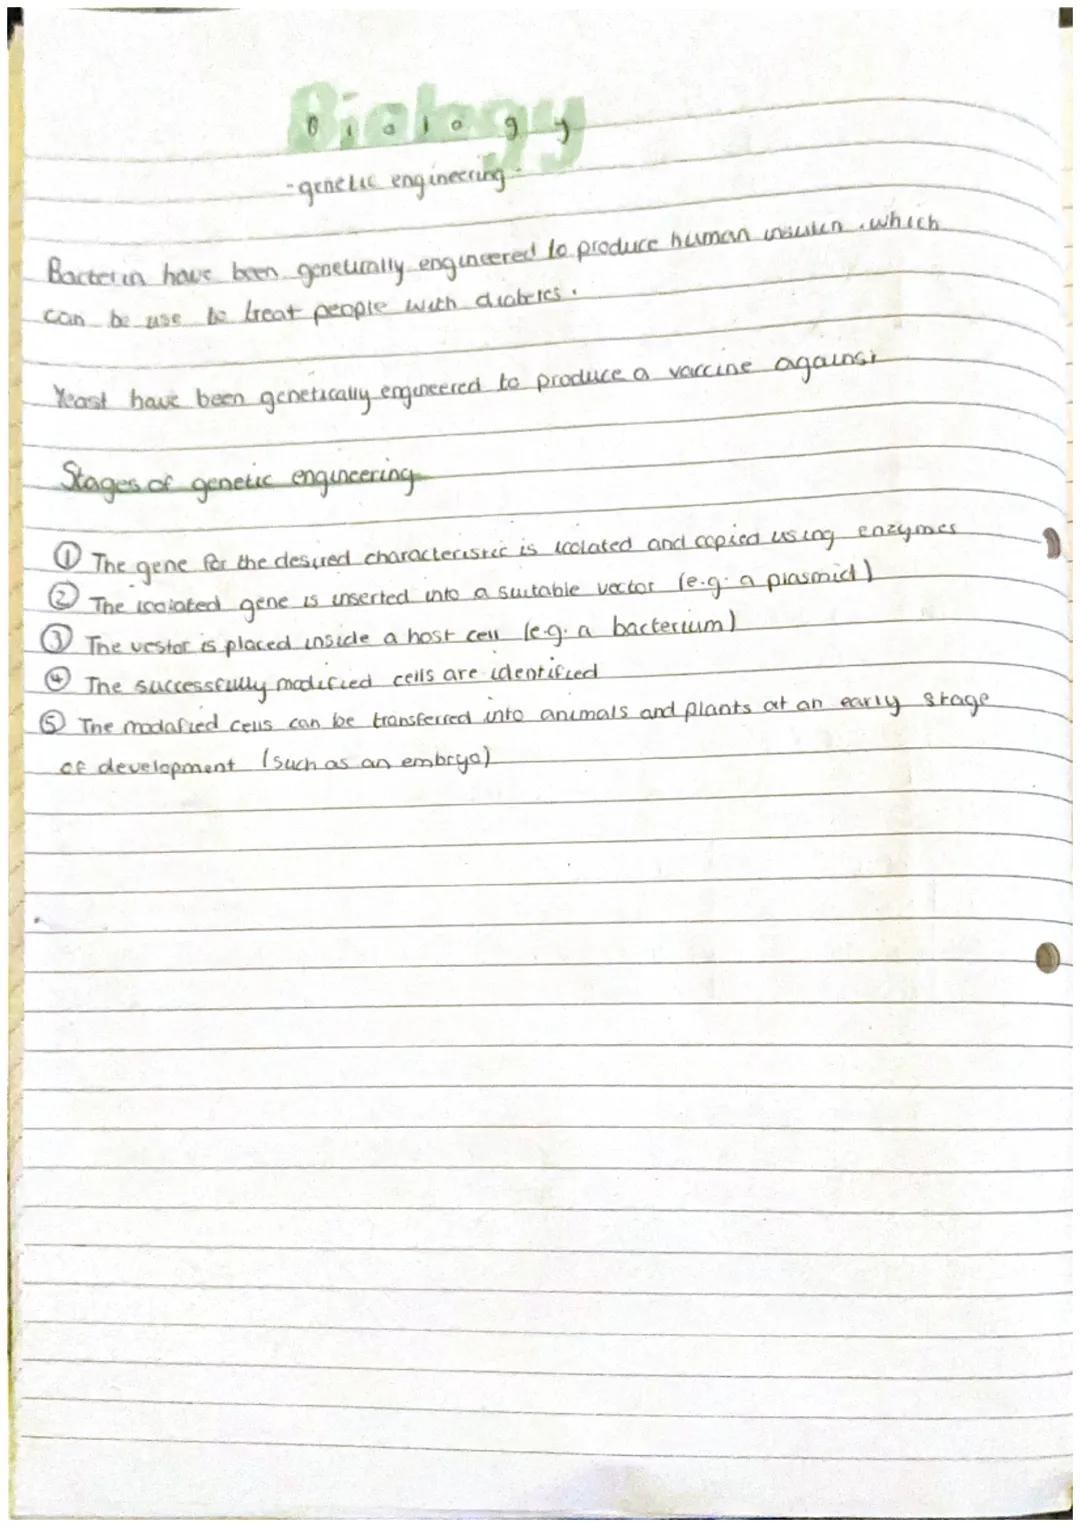 Biology
- genetic engineering -
Bacteria have been genetically engineered to produce human insulin . which
can be use to treat people with diabetes .
Yeast have been genetically engineered to produce a vaccine against
Stages of genetic engineering
① The gene for the desired characteristic is isolated and copied using enzymes
② The isolated gene is inserted into a suitable vector (e.g. a plasmid)
③ The vestor is placed inside a host cell (e.g. a bacterium)
④ The successfully modified cells are identified
⑤ The modafied cells can be transferred into animals and plants at an early stage
of development (such as an embryo)